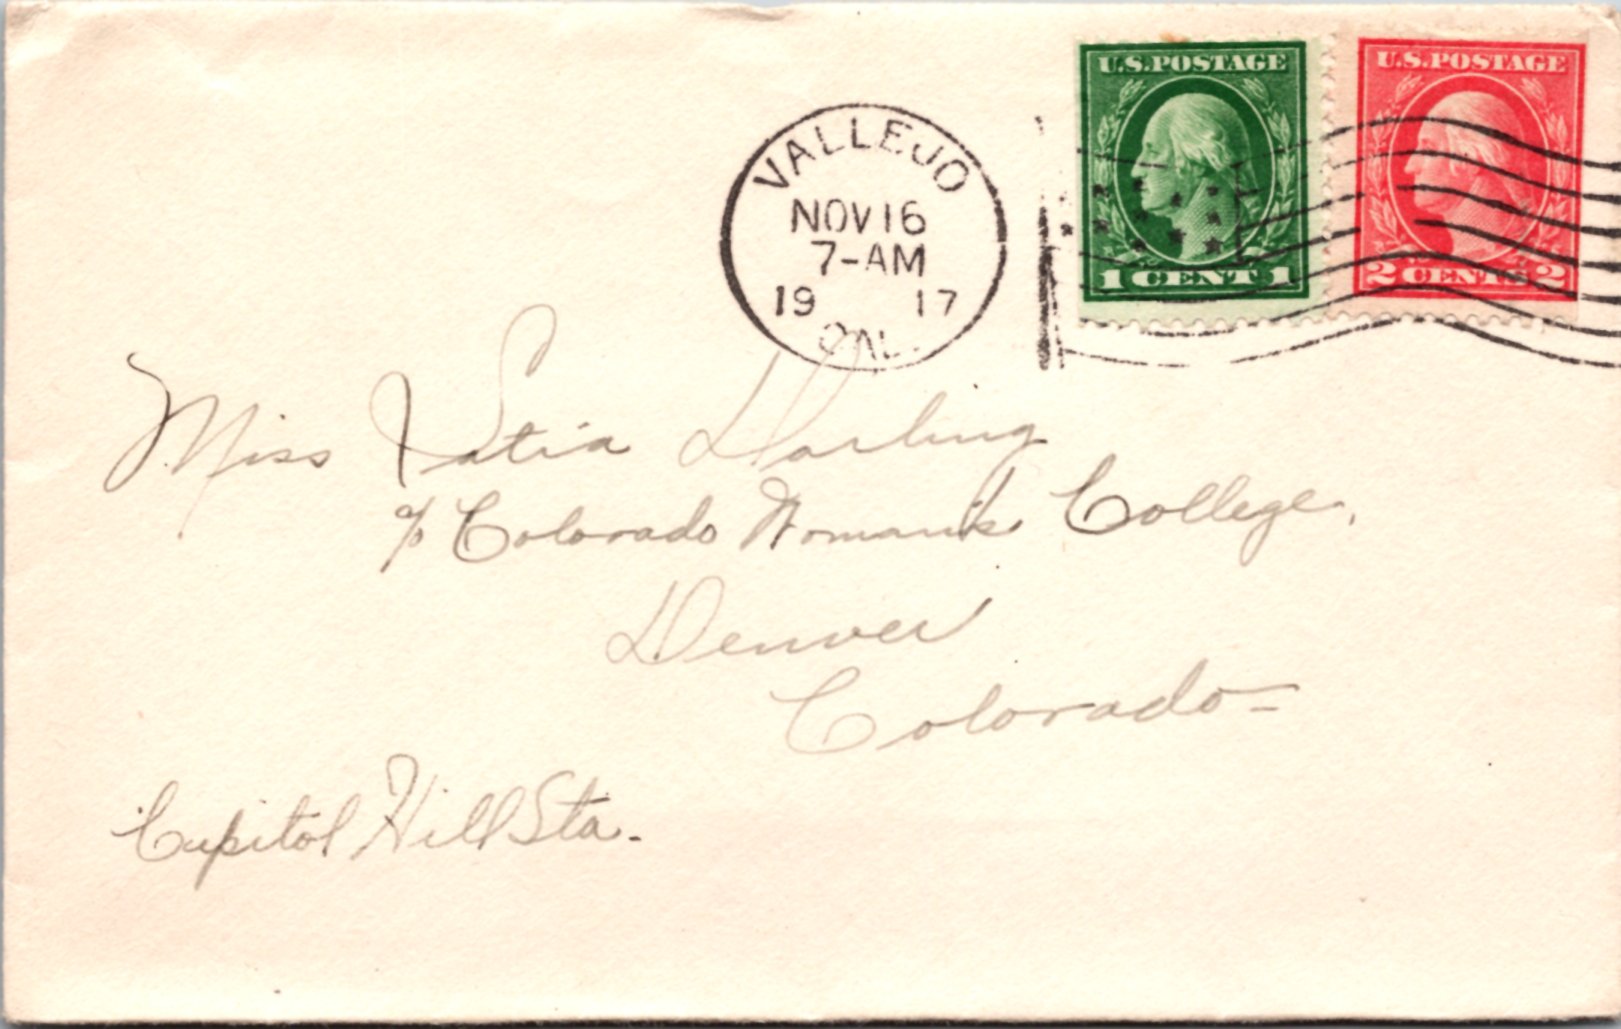 U.S.POSTAGE
1 CENT 1
U.S.POSTAGE
2 CENTS 2
VALLEJO
NOV 16
7-AM
19 17
CAL.
Miss Darling
c/o Colorado Woman's College,
Denver
Colorado=
Capitol Hill Sta.